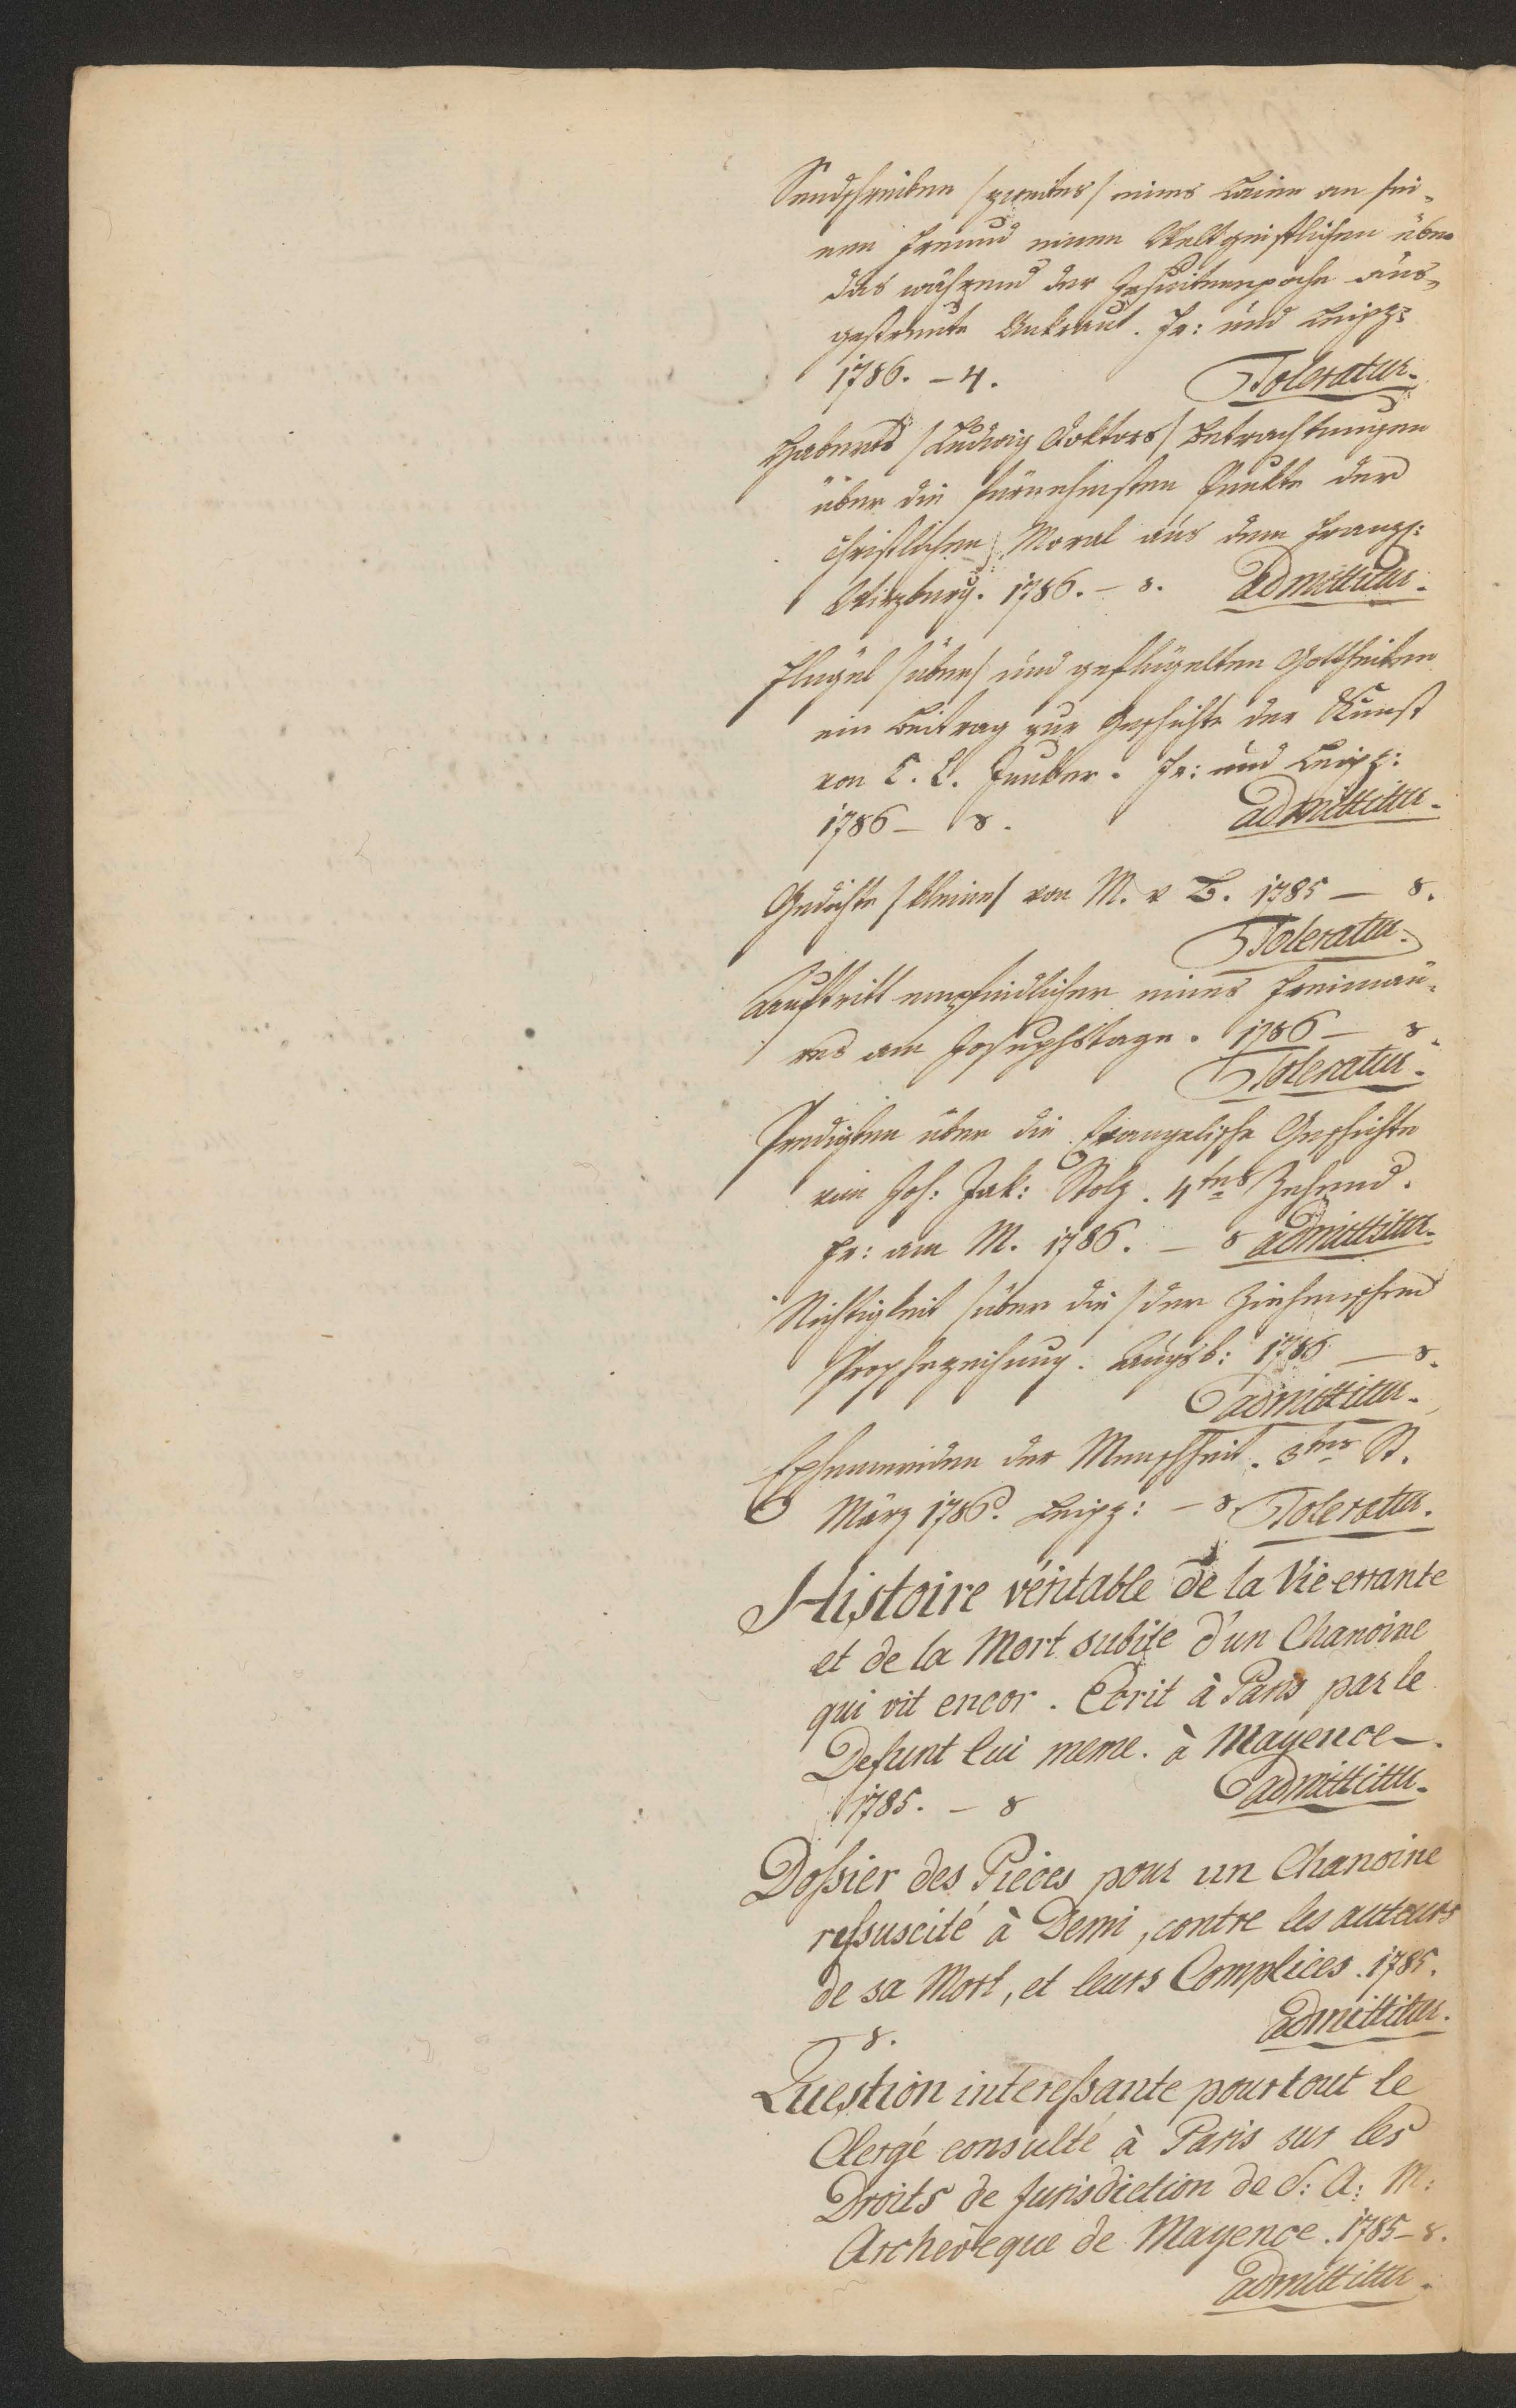 Sendschreiben /zweites/ eines Laien an sei-
nen Freund einen Weltgeistlichen über
das während der Jesuitenepoche aus-
gestreute Unkraut. Fr: und Leipz:
1786. - 4. Toleratur.
Haberts /Ludwig Doktors/ Betrachtungen
über die fürnehmsten Punkte der
christlichen Moral aus dem Franzs:
Wirzburg. 1786. - 8. Admittitur.
Flügel /über/ und geflügelten Gottheiten
ein Beitrag zur Geschichte der Kunst
von C. L. Junker. Fr: und Leipz:
1786 - 8. admittitur.
Gedichte /kleine/ von M. v B. 1785 - 8.
Toleratur.
Auftritt empfindlicher eines Freimau-
rers am Josephstage. 1786 - 8.
Toleratur.
Predigten über die Evangelische Geschichte
von Joh: Jak: Stolz. 4tes Zehend.
Fr: am M. 1786. - 8 admittitur.
Nichtigkeit /über die/ der Ziehenschen
Prophezeihung. Augsb: 1786 - 8.
admittitur.
Ephemeriden der Menschheit. 3tes St.
März 1786. Leipz: - 8. Toleratur.
Histoire véritable de la Vie errante
et de la Mort subite d'un Chanoine
qui vit encor. Ecrit à Paris par le
Defunt lui meme. à Mayence -.
1785. - 8 admittitur.
Doſsier des Pieces pour un Chanoine
reſsuscité à Demi, contre les auteurs
de sa Mort, et leurs Complices. 1785.
- 8. admittitur.
Question intereſsante pour tout le
Clergé consulté à Paris sur les
Droits de Jurisdiction de S: A: M:
Archevêque de Mayence. 1785 - 8.
admittitur.